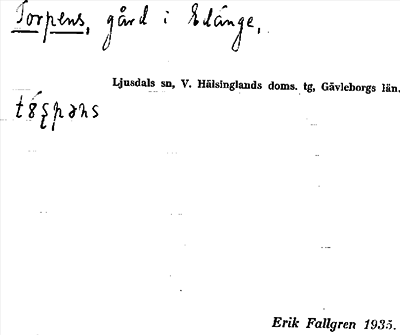 Torpens, gård i Edänge,
Ljusdals sn, V. Hälsinglands doms. tg, Gävleborgs län.
Erik Fallgren 1935.